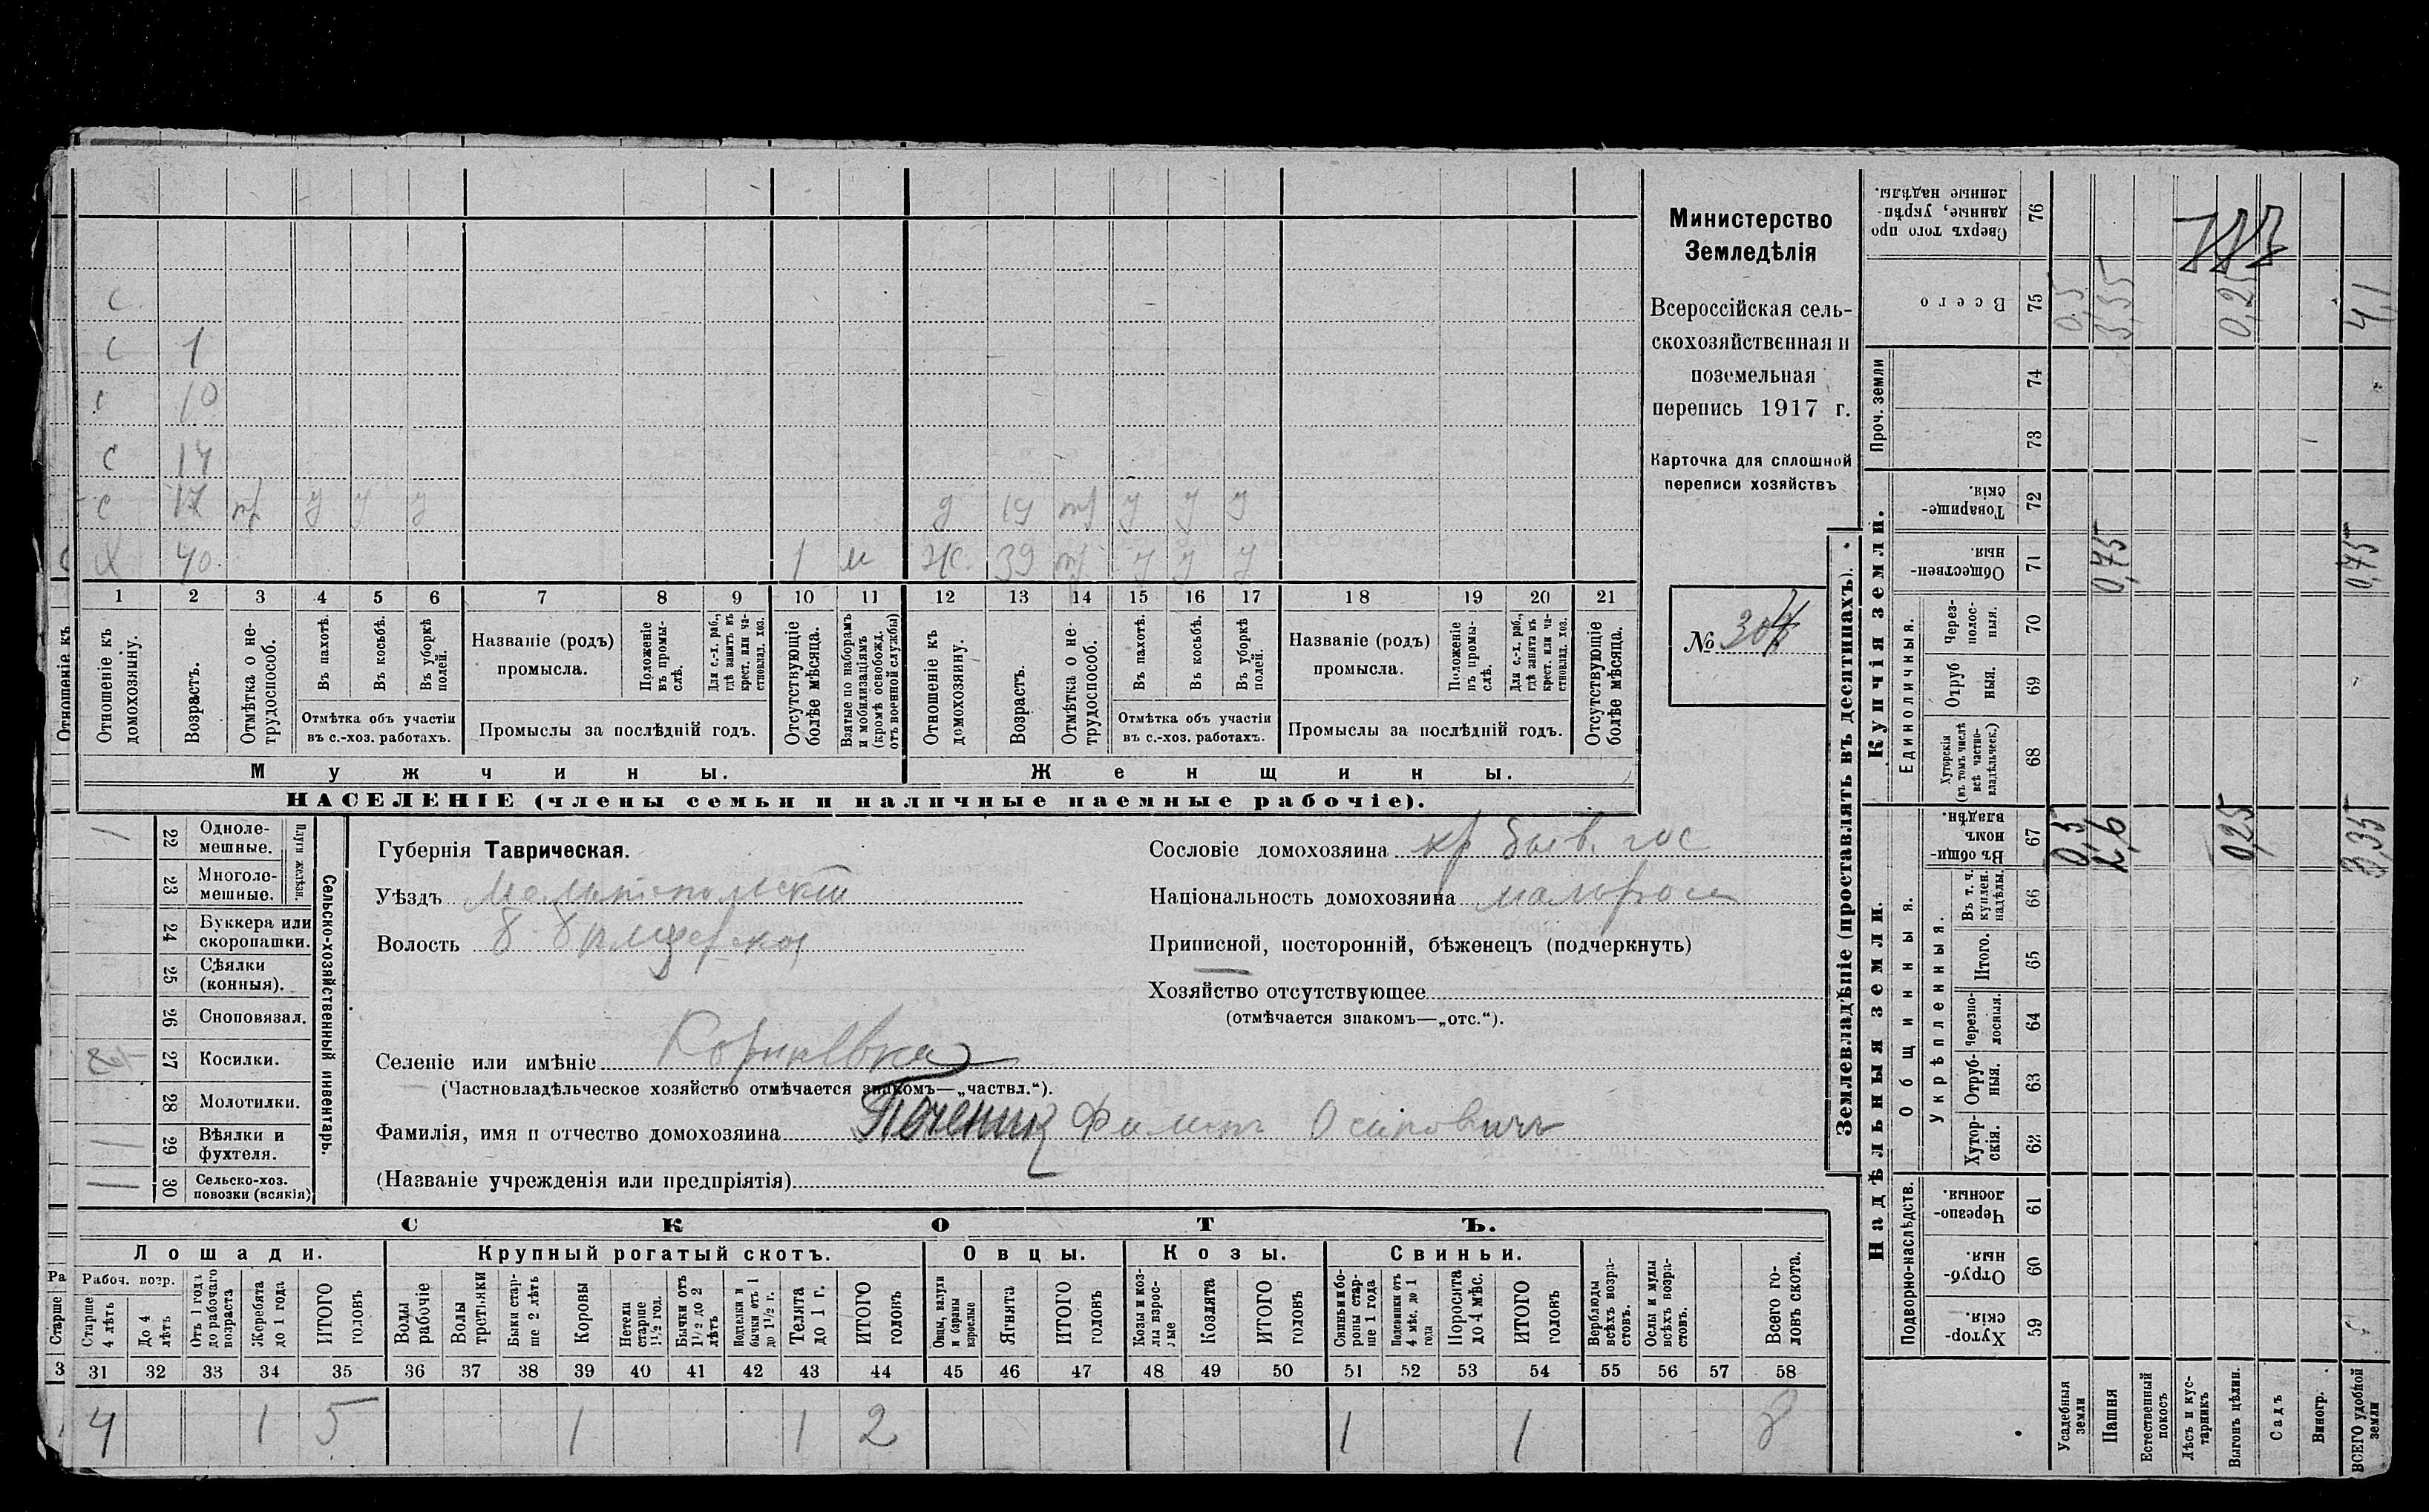 Министерство
Земледѣлія
Всероссійская сель-
скохозяйственная и
поземельная
перепись 1917 г.
Карточка для сплошной
переписи хозяйствъ
№ 304
С
С 1
С 10
С 14
С 17 тр у у у д 19 тр у у у
Х 40 1 м ж. 39 тр у у у
1 2 3 4 5 6 7 8 9 10 11 12 13 14 15 16 17 18 19 20 21
Отношеніе къ
Отношеніе къ домохозяину.
Возрастъ.
Отмѣтка о не-трудоспособ.
Въ пахотѣ.
Въ косьбѣ.
Въ уборкѣ полей.
Отмѣтка объ участіи
въ с.-хоз. работахъ.
Названіе (родъ)
промысла.
Положеніе въ промы-слѣ.
Для с.-х. раб., гдѣ занятъ въ крест. или ча-стновлад. хоз.
Промыслы за послѣдній годъ.
Отсутствующіе болѣе мѣсяца.
Взятые по наборамъ и мобилизаціямъ (кромѣ освобожд. отъ военной службы)
Отношеніе къ домохозяину.
Возрастъ.
Отмѣтка о не-трудоспособ.
Въ пахотѣ.
Въ косьбѣ.
Въ уборкѣ полей.
Отмѣтка объ участіи
въ с.-хоз. работахъ.
Названіе (родъ)
промысла.
Положеніе въ промы-слѣ.
Для с.-х. раб., гдѣ занята въ крест. или ча-стновлад. хоз.
Промыслы за послѣдній годъ.
Отсутствующіе болѣе мѣсяца.
Мужчины.
Женщины.
НАСЕЛЕНІЕ (члены семьи и наличные наемные рабочіе).
Сельско-хозяйственный инвентарь.
Плуги желѣзн.
22 Одноле-мешные.
23 Многоле-мешные.
24 Буккера или скоропашки.
25 Сѣялки (конныя).
26 Сноповязал.
27 Косилки.
28 Молотилки.
29 Вѣялки и фухтеля.
30 Сельско-хоз. повозки (всякія)
Губернія Таврическая.
Уѣздъ Мелитопольскій
Волость
Селеніе или имѣніе
(Частновладѣльческое хозяйство отмѣчается знакомъ—„частвл.“).
Фамилія, имя и отчество домохозяина Печеник Филипъ Осиповичъ
(Названіе учрежденія или предпріятія)
Сословіе домохозяина кр бывъ. гос
Національность домохозяина малоросъ
Приписной, посторонній, бѣженецъ (подчеркнуть)
Хозяйство отсутствующее
(отмѣчается знакомъ—„отс.“).
СКОТЪ.
Лошади. Крупный рогатый скотъ. Овцы. Козы. Свиньи.
Рабоч. возр.
Старше 4 лѣтъ
До 4 лѣтъ
Отъ 1 года до рабочаго возраста
Жеребята до 1 года
ИТОГО головъ
Волы рабочіе
Волы третьяки
Быки стар-ше 2 лѣтъ
Коровы
Нетели старше 1½ год.
Бычки отъ 1½ до 2 лѣтъ
Подтелки и бычки отъ 1 до 1½ г.
Телята до 1 г.
ИТОГО головъ
Овцы, валухи и бараны взрослые
Ягнята
ИТОГО головъ
Козы и коз-лы взрос-лые
Козлята
ИТОГО головъ
Свиньи и бо-ровы стар-ше 1 года
Подсвинки отъ 4 мѣс. до 1 года
Поросята до 4 мѣс.
ИТОГО головъ
Верблюды всѣхъ возра-стовъ.
Ослы и мулы всѣхъ возра-стовъ.
Всего го-ловъ скота.
31 32 33 34 35 36 37 38 39 40 41 42 43 44 45 46 47 48 49 50 51 52 53 54 55 56 57 58
4 1 5 1 1 2 1 1 8
Землевладѣніе (проставлять въ десятинахъ).
Надѣльныя земли.
Купчія земли.
Проч. земли
Подворно-наслѣдств.
Общинныя.
Укрѣпленныя.
Единоличныя.
59 Хутор-скія.
60 Отруб-ныя.
61 Черезпо-лосныя.
62 Хутор-скія.
63 Отруб-ныя.
64 Черезпо-лосныя.
65 Итого.
66 Въ т. ч. куплен. надѣлы.
67 Въ общин-номъ владѣн.
68 Хуторскія (въ томъ числѣ всѣ частно-владѣльческ.)
69 Отруб-ныя.
70 Через-полос-ныя.
71 Обществен-ныя.
72 Товарище-скія.
73
74
75 Всего
76 Сверхъ того про данные, укрѣп-ленные надѣлы.
Усадебныя земли 0,5 0,5
Пашня 2,6 0,75 3,35
Естественный покосъ
Лѣсъ и кус-тарникъ
Выгонъ цѣлин. 0,25 0,25
Садъ
Виногр.
ВСЕГО удобной земли 3,35 0,75 4,1